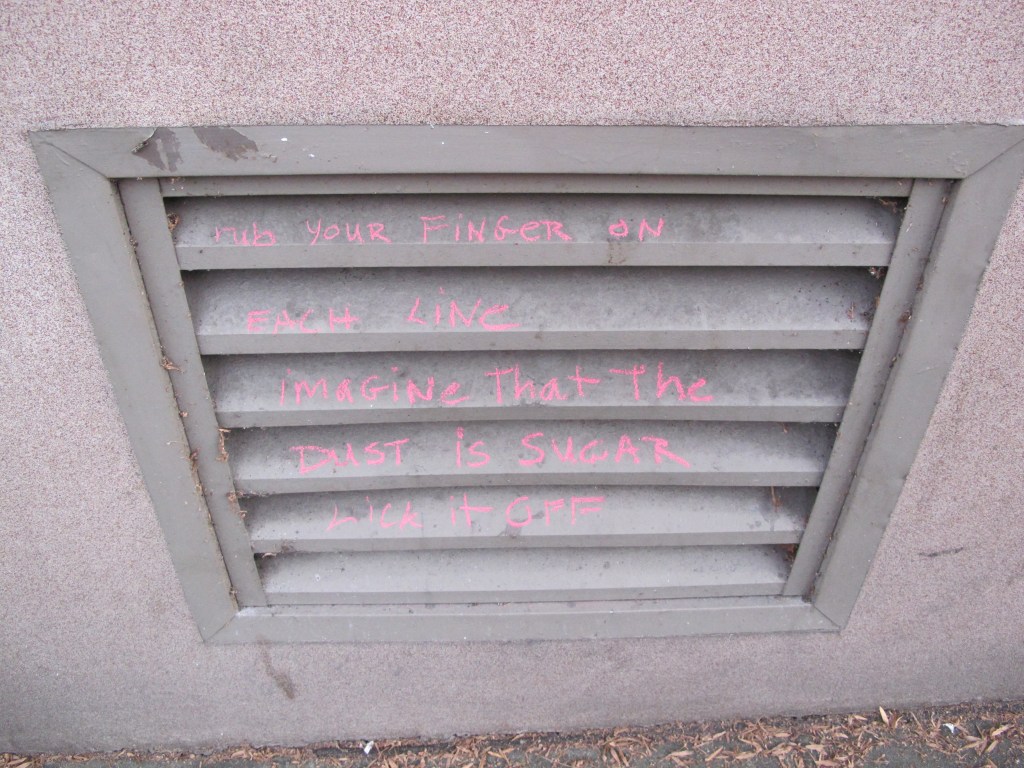 rub YOUR FiNGeR ON
EACH LiNe
iMAGiNe That The
DUST is SUGAR
Lick it OFF